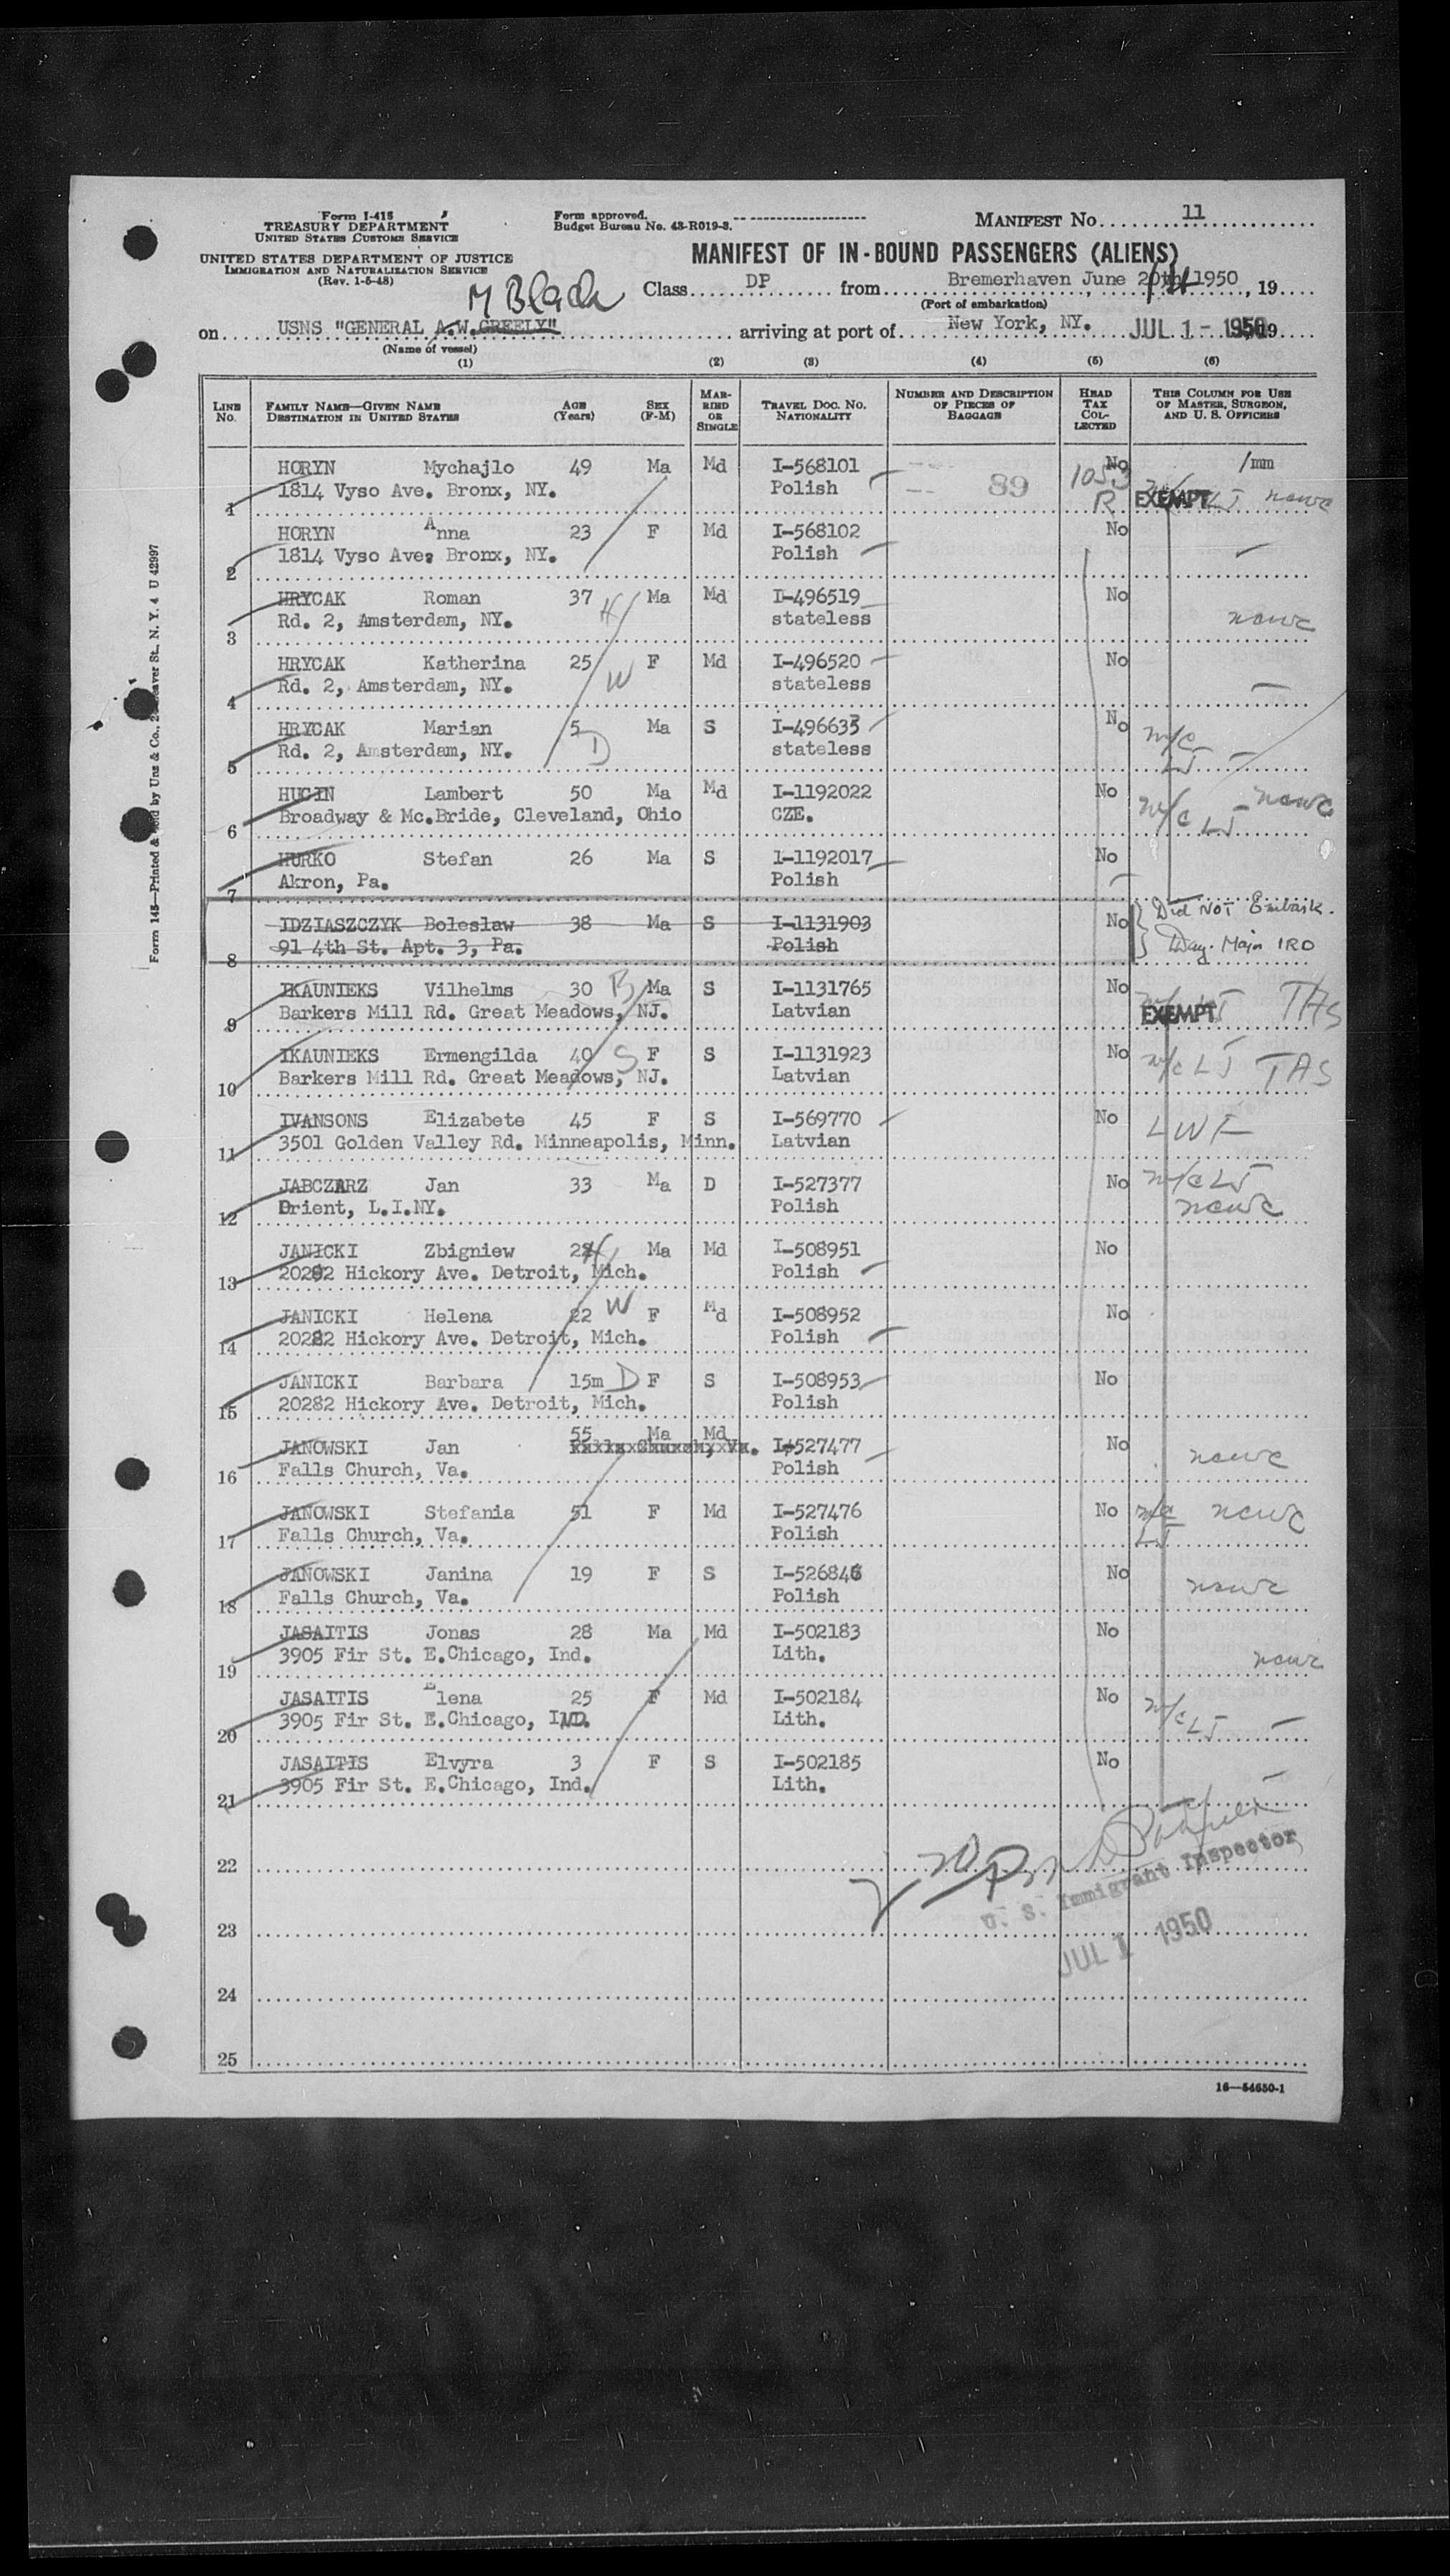 Form I-415
TREASURY DEPARTMENT
UNITED STATES CUSTOMS SERVICE
UNITED STATES DEPARTMENT OF JUSTICE
IMMIGRATION AND NATURALIZATION SERVICE
(Rev. 1-5-48)
Form approved.
Budget Bureau No. 43-R019-3.
MANIFEST No. 11
MANIFEST OF IN-BOUND PASSENGERS (ALIENS)
M Black
Class DP from Bremerhaven June 20th 1950, 19
(Port of embarkation)
on USNS "GENERAL A.W.GREELY" arriving at port of New York, NY. JUL 1 - 1950, 19
(Name of vessel)
(1) (2) (3) (4) (5) (6)
LINE No. FAMILY NAME—GIVEN NAME DESTINATION IN UNITED STATES AGE (Years) SEX (F-M) MARRIED OR SINGLE TRAVEL DOC. NO. NATIONALITY NUMBER AND DESCRIPTION OF PIECES OF BAGGAGE HEAD TAX COLLECTED THIS COLUMN FOR USE OF MASTER, SURGEON, AND U. S. OFFICERS
HORYN Mychajlo 49 Ma Md I-568101 No /mm
1 1814 Vyso Ave. Bronx, NY. Polish 89 1053 R EXEMPT
HORYN Anna 23 F Md I-568102 No
2 1814 Vyso Ave. Bronx, NY. Polish
HRYCAK Roman 37 H Ma Md I-496519 No
3 Rd. 2, Amsterdam, NY. stateless
HRYCAK Katherina 25 F Md I-496520 No
4 Rd. 2, Amsterdam, NY. W stateless
HRYCAK Marian 5 Ma S I-496635 No
5 Rd. 2, Amsterdam, NY. D stateless m/c LJ
HUCIN Lambert 50 Ma Md I-1192022 No
6 Broadway & Mc.Bride, Cleveland, Ohio CZE. m/c LJ
HURKO Stefan 26 Ma S I-1192017 No
7 Akron, Pa. Polish
IDZIASZCZYK Boleslaw 38 Ma S I-1131903 No Did Not Embark.
8 91 4th St. Apt. 3, Pa. Polish Major IRO
IKAUNIEKS Vilhelms 30 B Ma S I-1131765 No TAS
9 Barkers Mill Rd. Great Meadows, NJ. Latvian EXEMPT
IKAUNIEKS Ermengilda 40 S F S I-1131923 No m/c LJ TAS
10 Barkers Mill Rd. Great Meadows, NJ. Latvian
IVANSONS Elizabete 45 F S I-569770 No
11 3501 Golden Valley Rd. Minneapolis, Minn. Latvian
JABCZARZ Jan 33 Ma D I-527377 No m/c LJ
12 Orient, L.I.NY. Polish
JANICKI Zbigniew 28 H Ma Md I-508951 No
13 20282 Hickory Ave. Detroit, Mich. Polish
JANICKI Helena 22 W F Md I-508952 No
14 20282 Hickory Ave. Detroit, Mich. Polish
JANICKI Barbara 15m D F S I-508953 No
15 20282 Hickory Ave. Detroit, Mich. Polish
JANOWSKI Jan 55 Ma Md I-527477 No
16 Falls Church, Va. Polish
JANOWSKI Stefania 51 F Md I-527476 No m/c LJ
17 Falls Church, Va. Polish
JANOWSKI Janina 19 F S I-526846 No
18 Falls Church, Va. Polish
JASAITIS Jonas 28 Ma Md I-502183 No
19 3905 Fir St. E.Chicago, Ind. Lith.
JASAITIS Elena 25 F Md I-502184 No m/c LJ
20 3905 Fir St. E.Chicago, IND. Lith.
JASAITIS Elvyra 3 F S I-502185 No
21 3905 Fir St. E.Chicago, Ind. Lith.
22
U. S. Immigrant Inspector
23
JUL 1 1950
24
25
16—54650-1